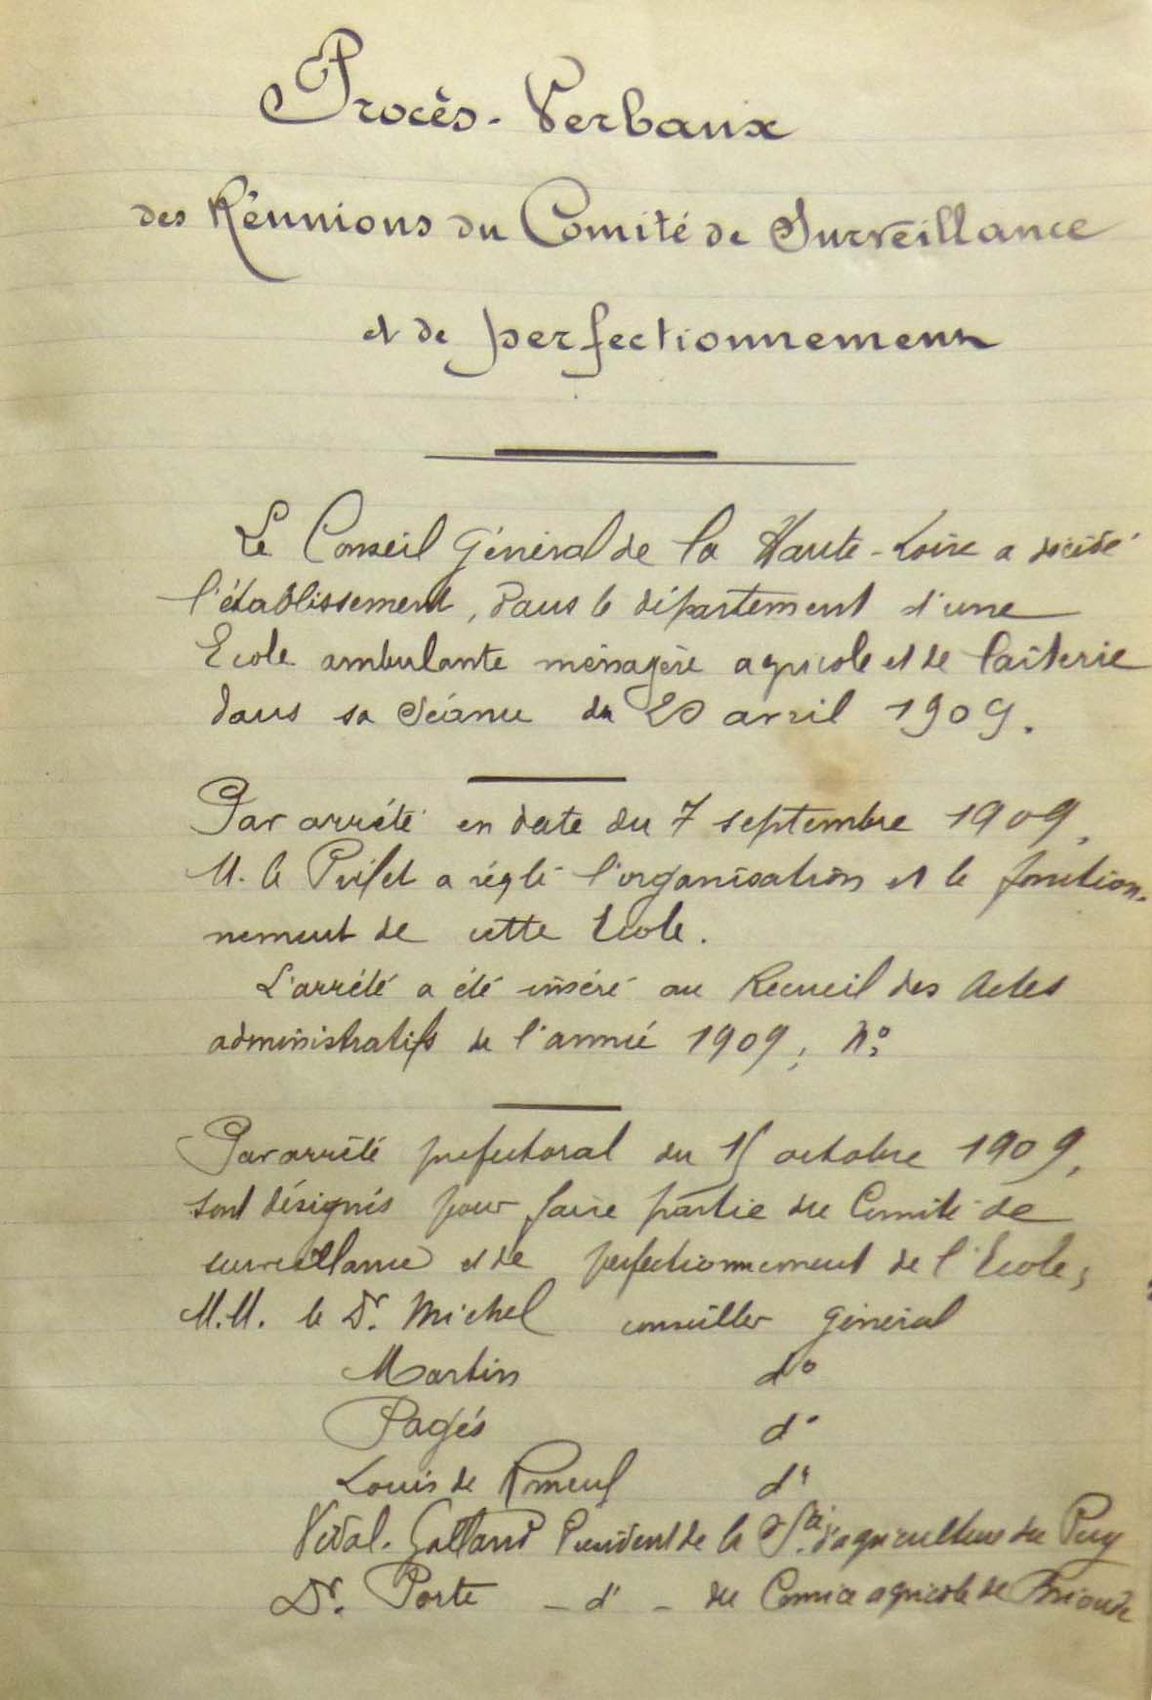 Procès-Verbaux
des Réunions du Comité de Surveillance
et de perfectionnement
Le Conseil Général de la Haute-Loire a décidé
l'établissement, dans le département d'une
Ecole ambulante ménagère agricole et de laiterie
dans sa séance du 20 avril 1909.
Par arrêté en date du 7 septembre 1909,
M. le Préfet a réglé l'organisation et le fonction-
nement de cette Ecole.
L'arrêté a été inséré au Recueil des Actes
administratifs de l'année 1909, No
Par arrêté préfectoral du 15 octobre 1909,
sont désignés pour faire partie du Comité de
surveillance et de perfectionnement de l'Ecole,
M.M. le Dr. Michel conseiller général
Martin do
Pagés do
Louis de Romeuf do
Vidal-Galland Président de la Sté. d'agriculture du Puy
Dr. Porte - do - du Comice agricole de Brioude